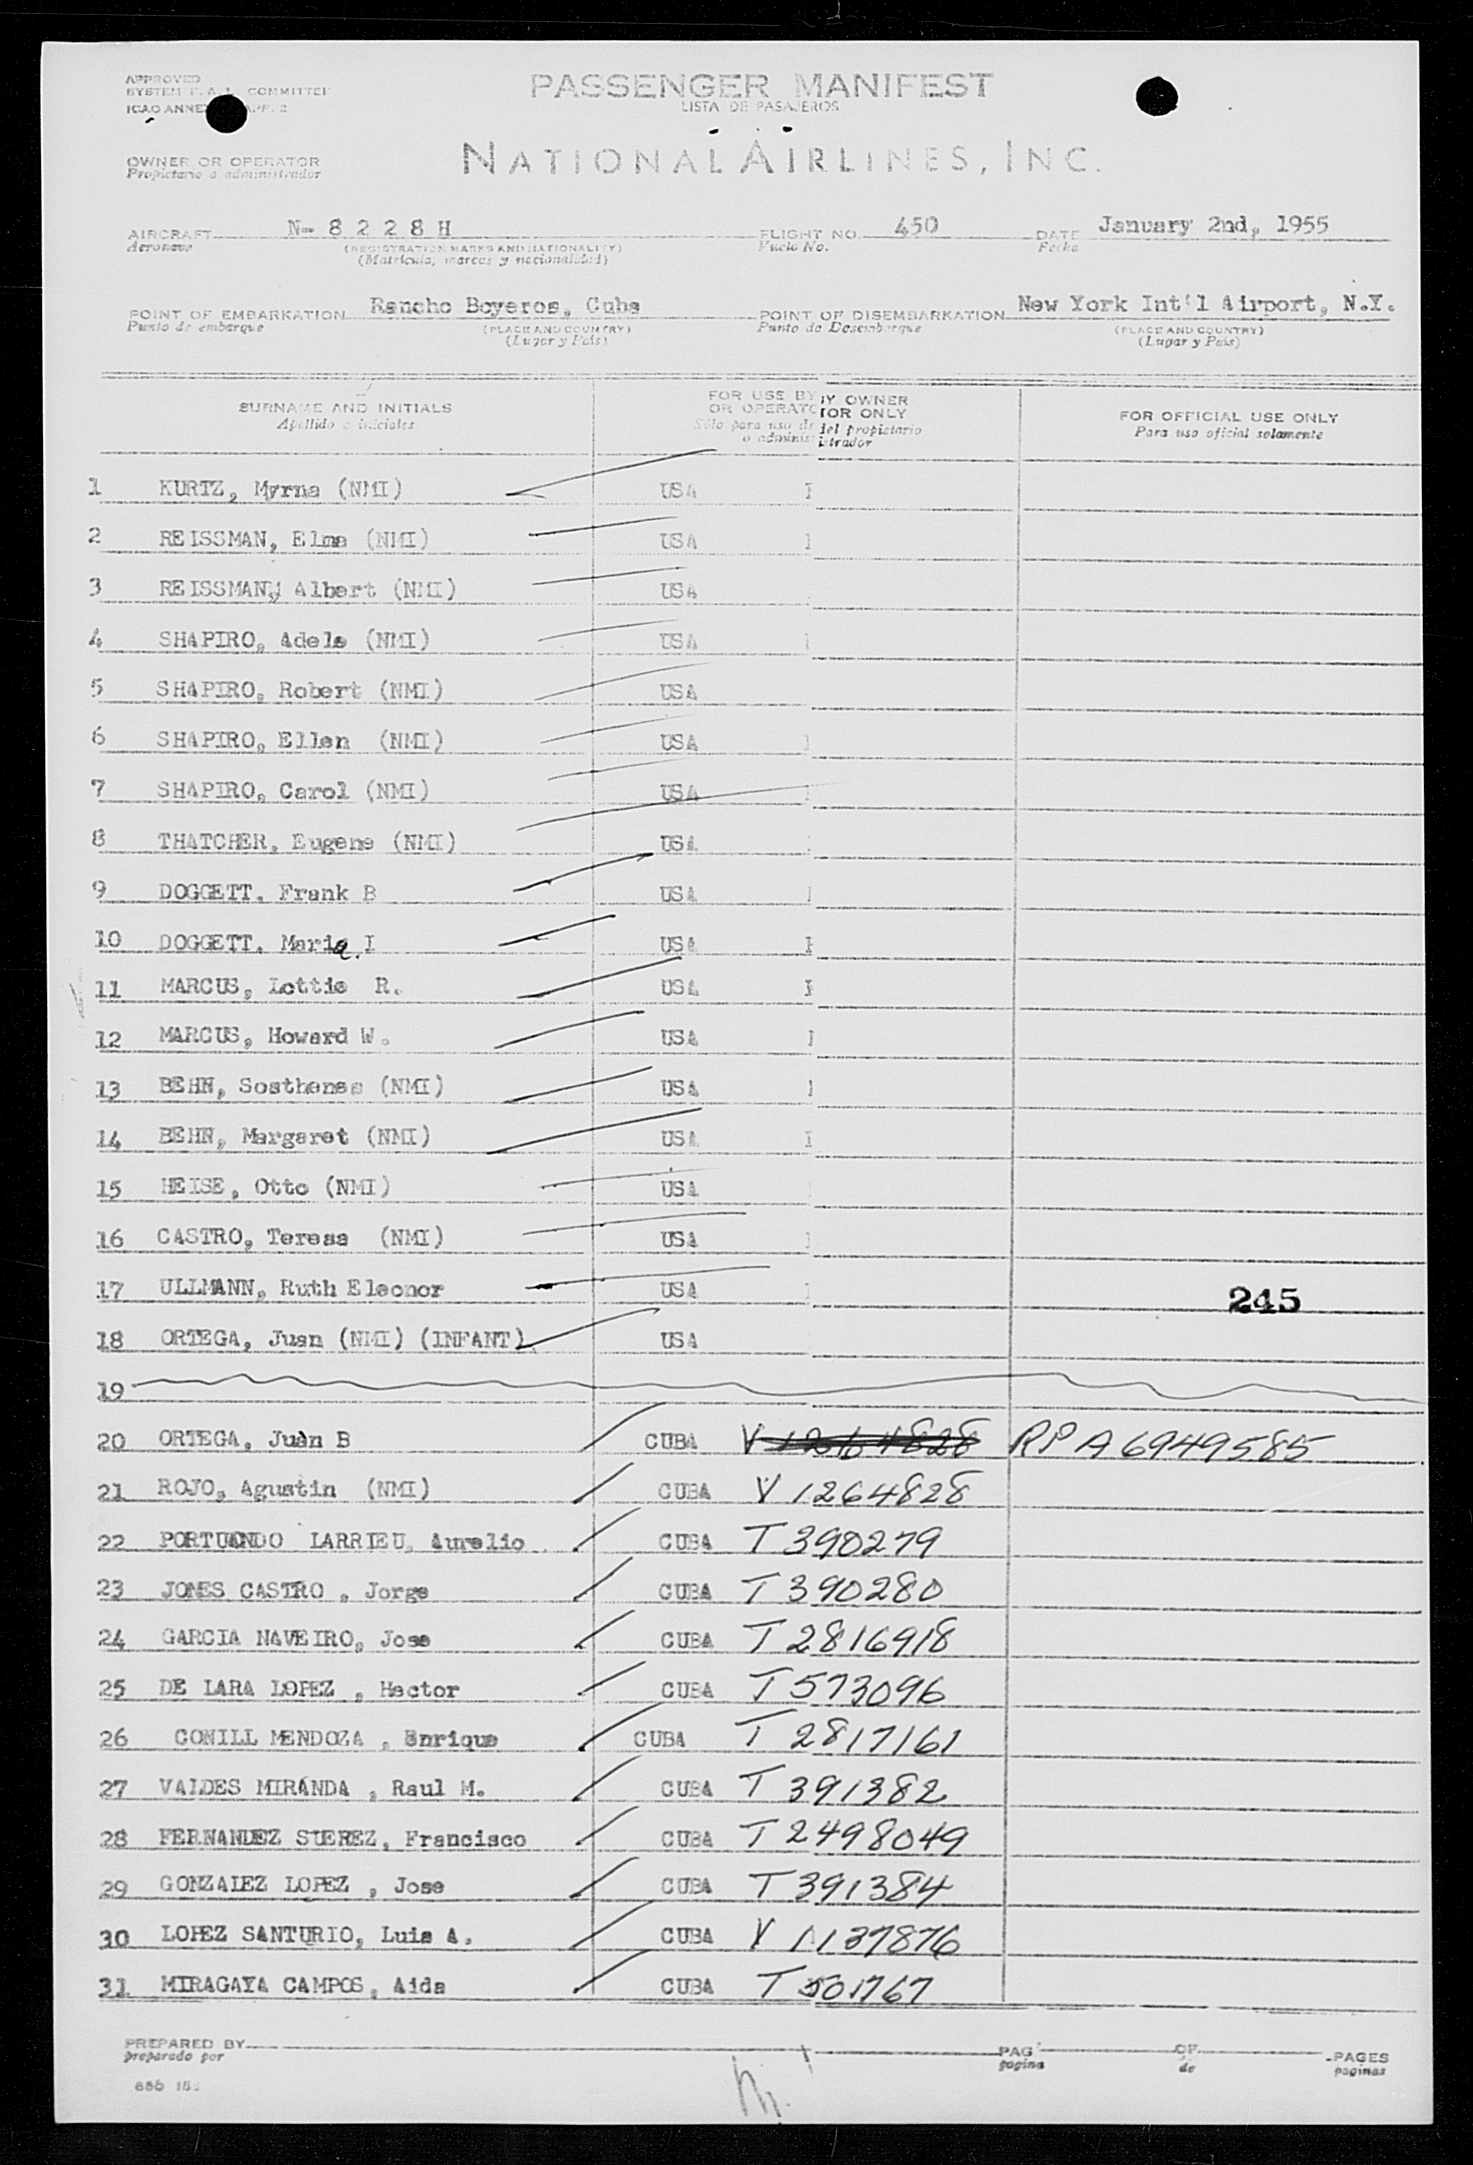 APPROVED
SYSTEM F. A. L. COMMITTEE
ICAO ANNEX APP. 2
PASSENGER MANIFEST
LISTA DE PASAJEROS
OWNER OR OPERATOR
Propietario o administrador
NATIONAL AIRLINES, INC.
AIRCRAFT N-8 2 2 8 H FLIGHT NO. 450 DATE January 2nd, 1955
Aeronave (REGISTRATION MARKS AND NATIONALITY) Vuelo No. Fecha
(Matricula, marcas y nacionalidad)
POINT OF EMBARKATION Rancho Boyeros, Cuba POINT OF DISEMBARKATION New York Int'l Airport, N.Y.
Punto de embarque (PLACE AND COUNTRY) Punto de Desembarque (PLACE AND COUNTRY)
(Lugar y Pais) (Lugar y Pais)
SURNAME AND INITIALS FOR USE BY OWNER OR OPERATOR ONLY FOR OFFICIAL USE ONLY
Apellido e iniciales Sólo para uso del propietario o administrador Para uso oficial solamente
1 KURTZ, Myrna (NMI) USA
2 REISSMAN, Elma (NMI) USA
3 REISSMANN, Albert (NMI) USA
4 SHAPIRO, Adele (NMI) USA
5 SHAPIRO, Robert (NMI) USA
6 SHAPIRO, Ellen (NMI) USA
7 SHAPIRO, Carol (NMI) USA
8 THATCHER, Eugene (NMI) USA
9 DOGGETT, Frank B USA
10 DOGGETT, Maria I USA
11 MARCUS, Lottie R. USA
12 MARCUS, Howard W. USA
13 BEHN, Sosthenes (NMI) USA
14 BEHN, Margaret (NMI) USA
15 HEISE, Otto (NMI) USA
16 CASTRO, Teresa (NMI) USA
17 ULLMANN, Ruth Eleonor USA 245
18 ORTEGA, Juan (NMI) (INFANT) USA
19
20 ORTEGA, Juan B CUBA V 1264828 RP A6949585
21 ROJO, Agustin (NMI) CUBA V 1264828
22 PORTUONDO LARRIEU, Aurelio CUBA T 390279
23 JONES CASTRO, Jorge CUBA T 390280
24 GARCIA NAVEIRO, Jose CUBA T 2816918
25 DE LARA LOPEZ, Hector CUBA T 573096
26 CONILL MENDOZA, Enrique CUBA T 2817161
27 VALDES MIRANDA, Raul M. CUBA T 391382
28 FERNANDEZ SUEREZ, Francisco CUBA T 2498049
29 GONZALEZ LOPEZ, Jose CUBA T 391384
30 LOPEZ SANTURIO, Luis A. CUBA V 1137876
31 MIRAGAYA CAMPOS, Aida CUBA T 501767
PREPARED BY PAG OF PAGES
preparado por pagina de paginas